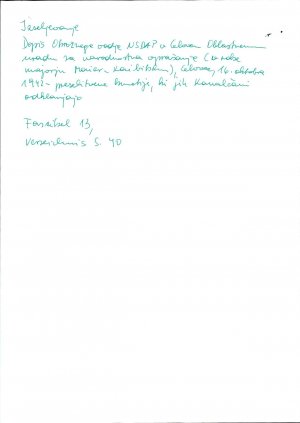 Izseljevanje
Dopis Okrožnega vodje NSDAP v Celovcu Oblastnemu
uradu za narodnostna vprašanje (v roke
majorju Maier-Kaibitschu), Celovec, 16. oktobra
1942 - preselitvene kmetije, ki jih Kanalčani
odklanjajo
Faszikel 13,
Verzeichnis S. 40